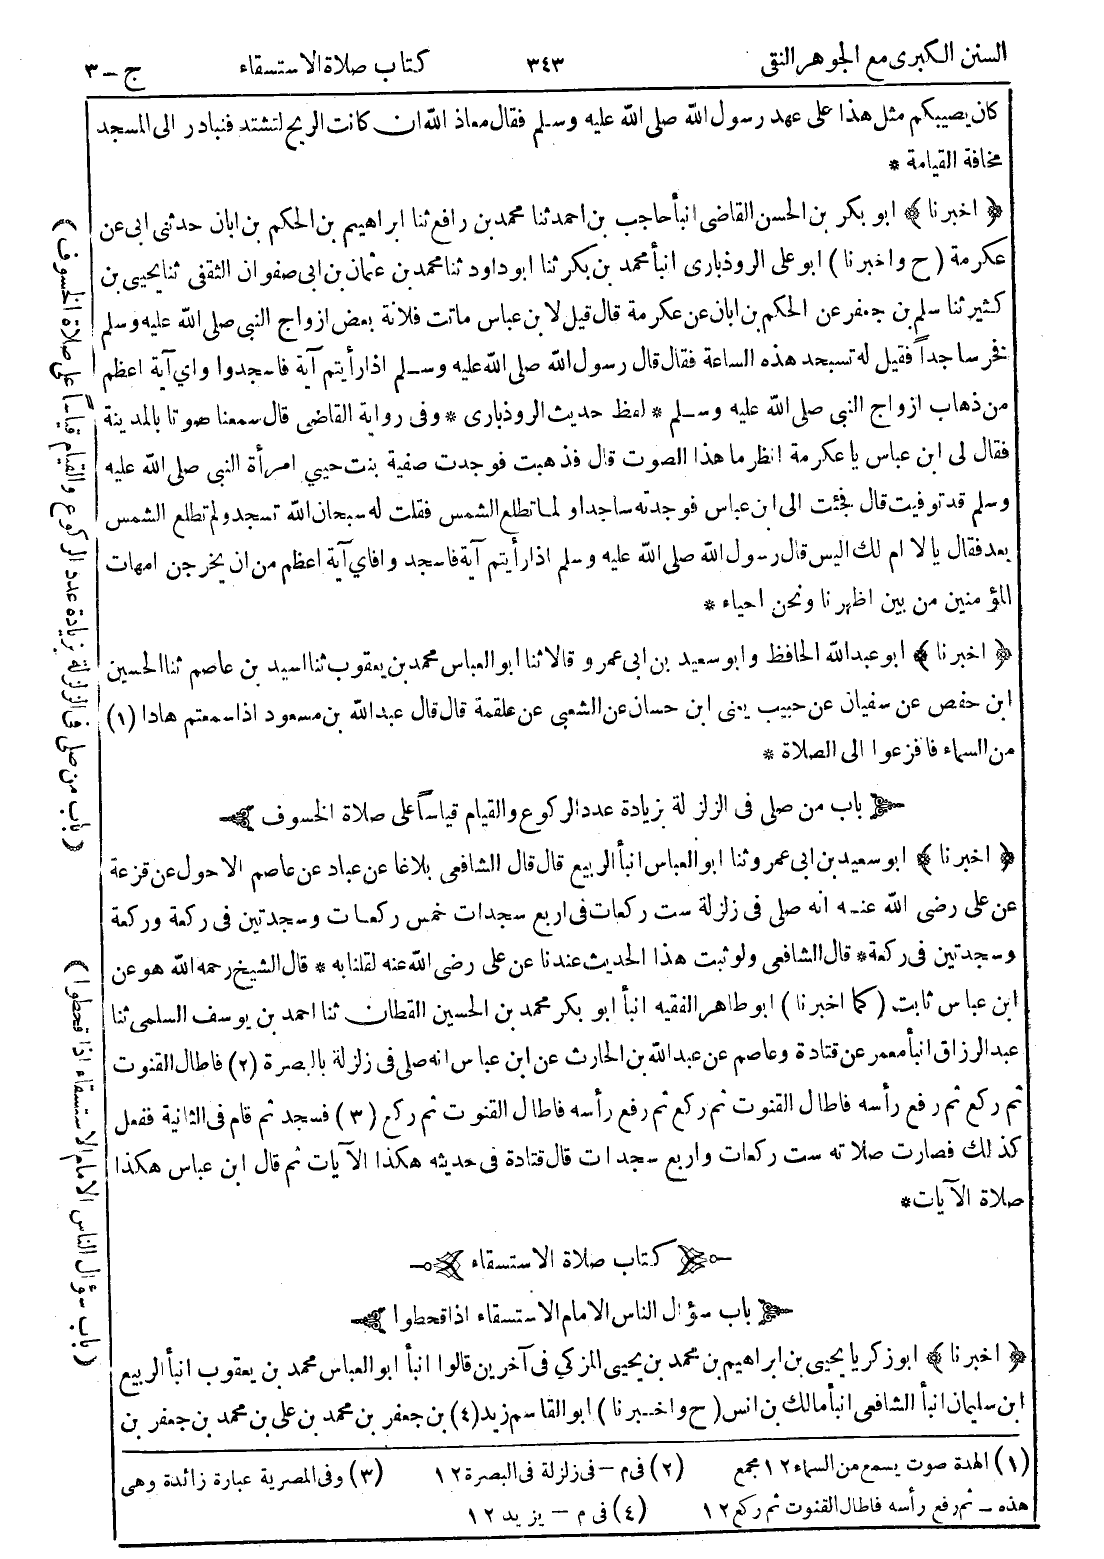 السنن الكبرى مع الجوهر النقى ٣٤٣ كتاب صلاة الاستسقاء ج-٣
كان يصيبكم مثل هذا على عهد رسول الله صلى الله عليه وسلم فقال معاذ الله ان كانت الريح لتشتد فنبادر الى المسجد
مخافة القيامة *
﴿ اخبرنا ﴾ ابو بكر بن الحسن القاضى انبأ حاجب بن احمد ثنا محمد بن رافع ثنا ابراهيم بن الحكم بن ابان حدثنى ابى عن
عكرمة ( ح واخبرنا ) ابو على الروذبارى انبأ محمد بن بكر ثنا ابو داود ثنا محمد بن عثمان بن ابى صفوان الثقفى ثنا يحيى بن
كثير ثنا سلم بن جعفر عن الحكم بن ابان عن عكرمة قال قيل لابن عباس ماتت فلانة بعض ازواج النبى صلى الله عليه وسلم
نخر ساجداً فقيل له تسجد هذه الساعة فقال قال رسول الله صلى الله عليه وسلم اذا رأيتم آية فاسجدوا واي آية اعظم
من ذهاب ازواج النبى صلى الله عليه وسلم * لفظ حديث الروذبارى * وفى رواية القاضى قال سمعنا صوتا بالمدينة
فقال لى ابن عباس يا عكرمة انظر ما هذا الصوت قال فذهبت فوجدت صفية بنت حيي امرأة النبى صلى الله عليه
وسلم قد توفيت قال فجئت الى ابن عباس فوجدته ساجدا ولما تطلع الشمس فقلت له سبحان الله تسجد ولم تطلع الشمس
بعد فقال يا لا ام لك اليس قال رسول الله صلى الله عليه وسلم اذا رأيتم آية فاسجدوا فاي آية اعظم من ان يخرجن امهات
المؤمنين من بين اظهرنا ونحن احياء *
﴿ اخبرنا ﴾ ابو عبد الله الحافظ وابو سعيد بن ابى عمرو قالا ثنا ابو العباس محمد بن يعقوب ثنا اسيد بن عاصم ثنا الحسين
ابن حفص عن سفيان عن حبيب يعنى ابن حسان عن الشعبي عن علقمة قال قال عبد الله بن مسعود اذا سمعتم هادا (١)
من السماء فافزعوا الى الصلاة *
باب من صلى فى الزلزلة بزيادة عدد الركوع والقيام قياساً على صلاة الخسوف
﴿ اخبرنا ﴾ ابو سعيد بن ابى عمرو ثنا ابو العباس انبأ الربيع قال قال الشافعى بلاغا عن عباد عن عاصم الاحول عن قزعة
عن على رضى الله عنه انه صلى فى زلزلة ست ركعات فى اربع سجدات خمس ركعات وسجدتين فى ركعة وركعة
وسجدتين فى ركعة * قال الشافعى ولو ثبت هذا الحديث عندنا عن على رضى الله عنه لقلنا به * قال الشيخ رحمه الله هو عن
ابن عباس ثابت ( كما اخبرنا ) ابو طاهر الفقيه انبأ ابو بكر محمد بن الحسين القطان ثنا احمد بن يوسف السلمى ثنا
عبد الرزاق انبأ معمر عن قتادة وعاصم عن عبد الله بن الحارث عن ابن عباس انه صلى فى زلزلة بالبصرة (٢) فاطال القنوت
ثم ركع ثم رفع رأسه فاطال القنوت ثم ركع ثم رفع رأسه فاطال القنوت ثم ركع (٣) فسجد ثم قام فى الثانية ففعل
كذلك فصارت صلاته ست ركعات واربع سجدات قال قتادة فى حديثه هكذا الآيات ثم قال ابن عباس هكذا
صلاة الآيات *
كتاب صلاة الاستسقاء
باب سؤال الناس الامام الاستسقاء اذا قحطوا
﴿ اخبرنا ﴾ ابو زكريا يحيى بن ابراهيم بن محمد بن يحيى المزكي فى آخرين قالوا انبأ ابو العباس محمد بن يعقوب انبأ الربيع
ابن سليمان انبأ الشافعى انبأ مالك بن انس ( ح واخبرنا ) ابو القاسم زيد (٤) بن جعفر بن محمد بن على بن محمد بن جعفر بن
(١) الهدة صوت يسمع من السماء ١٢ مجمع (٢) فى م - فى زلزلة فى البصرة ١٢ (٣) وفى المصرية عبارة زائدة وهى
هذه - ثم رفع رأسه فاطال القنوت ثم ركع ١٢ (٤) فى م - يزيد ١٢
( باب من صلى فى الزلزلة بزيادة عدد الركوع والقيام قياساً على صلاة الخسوف )
( باب سؤال الناس الامام الاستسقاء اذا قحطوا )